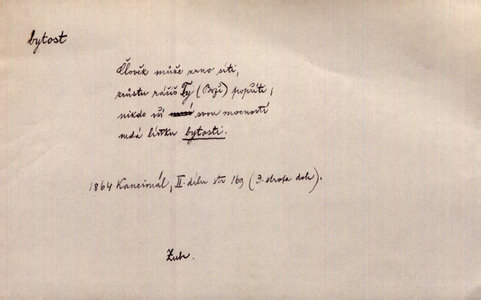 bytost
Člověk může zrno síti,
zrůstu ráčíš Ty (Bože) popříti;
nikdo vší svou mocností
nedá lístku bytosti.
1864 Kancionál, II. dílu str 169 (3. strofa dole).
Zubr.